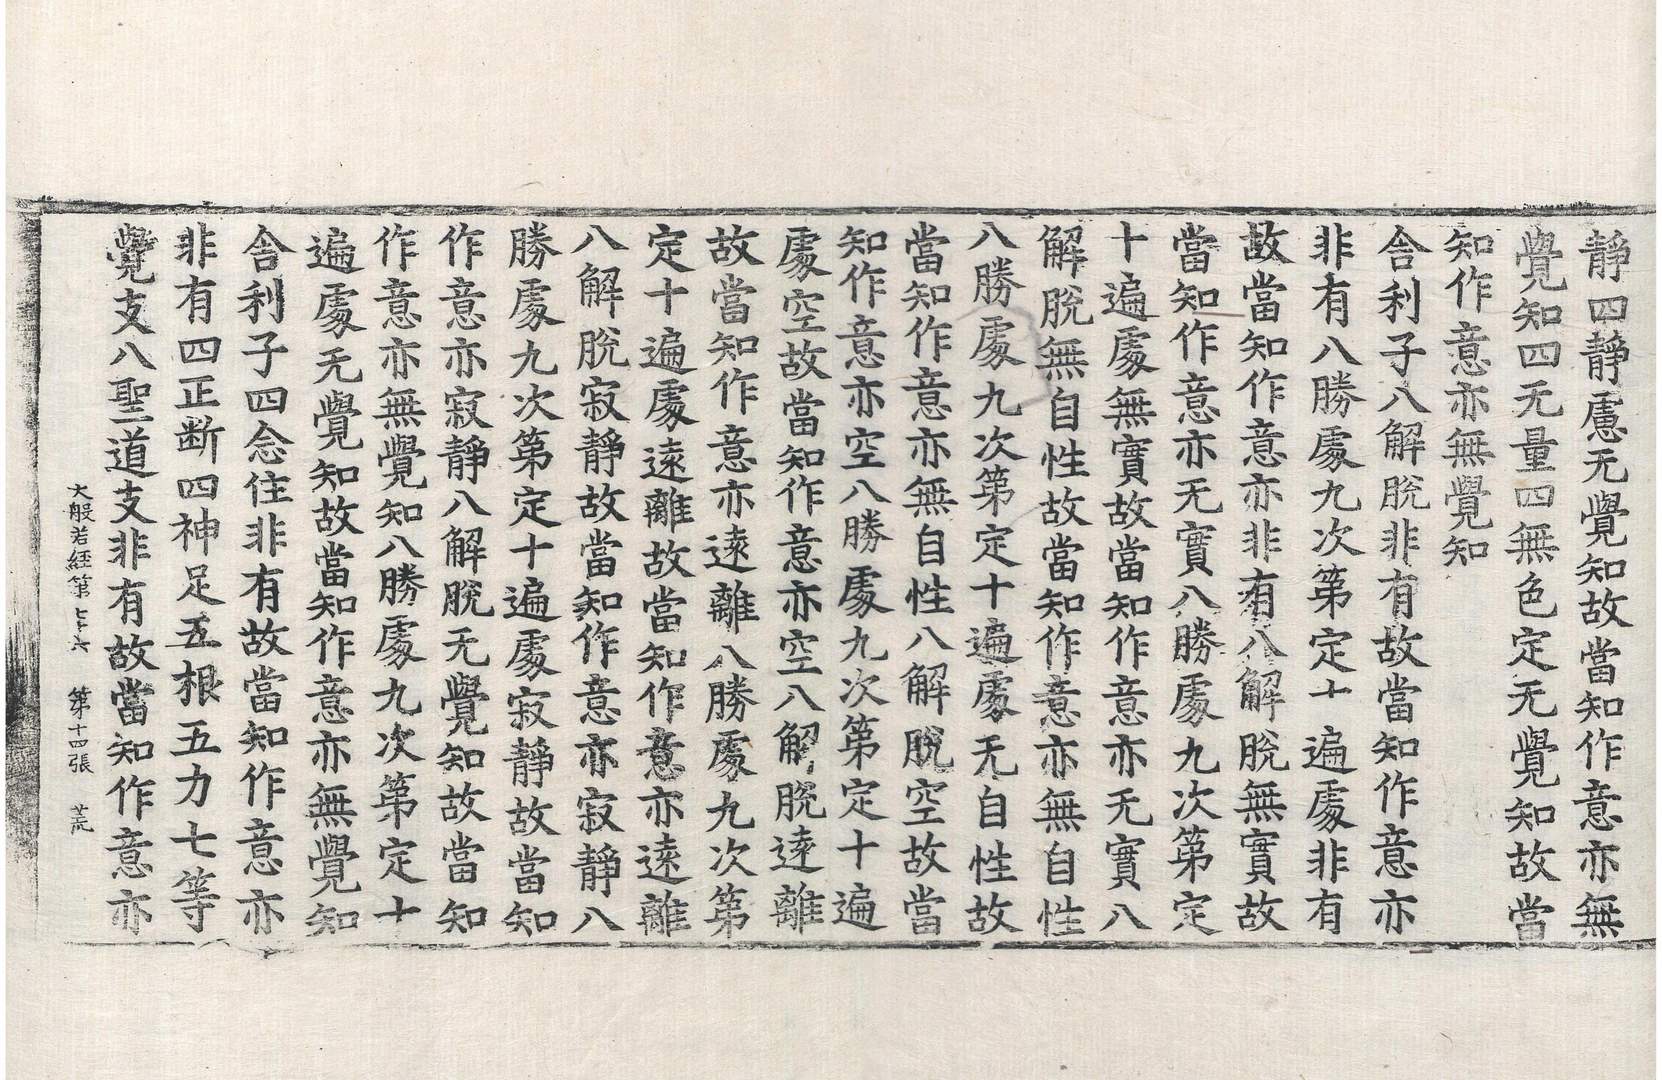 靜四靜慮无覺知故當知作意亦無
覺知四无量四無色定无覺知故當
知作意亦無覺知
舍利子八解脫非有故當知作意亦
非有八勝處九次第定十遍處非有
故當知作意亦非有八解脫無實故
當知作意亦无實八勝處九次第定
十遍處無實故當知作意亦无實八
解脫無自性故當知作意亦無自性
八勝處九次第定十遍處无自性故
當知作意亦無自性八解脫空故當
知作意亦空八勝處九次第定十遍
處空故當知作意亦空八解脫遠離
故當知作意亦遠離八勝處九次第
定十遍處遠離故當知作意亦遠離
八解脫寂靜故當知作意亦寂靜八
勝處九次第定十遍處寂靜故當知
作意亦寂靜八解脫无覺知故當知
作意亦無覺知八勝處九次第定十
遍處无覺知故當知作意亦無覺知
舍利子四念住非有故當知作意亦
非有四正断四神足五根五力七等
覺支八聖道支非有故當知作意亦
大般若經第七十六 第十四張 荒